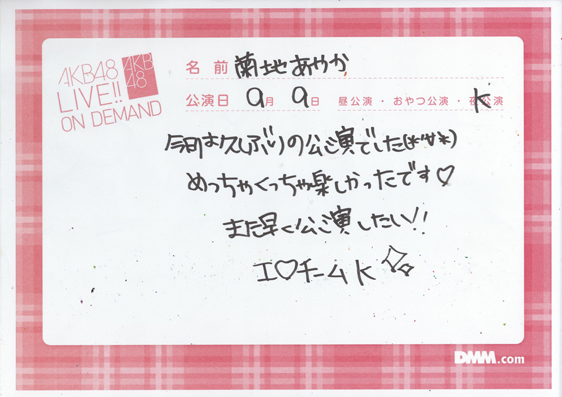 AKB48
LIVE!!
ON DEMAND
AKB
48
名前 菊地あやか
公演日 9月 9日 昼公演・おやつ公演・夜公演 K
今日は久しぶりの公演でした(*^^*)
めっちゃくっちゃ楽しかったです♡
また早く公演したい!!
I♡チームK
DMM.com